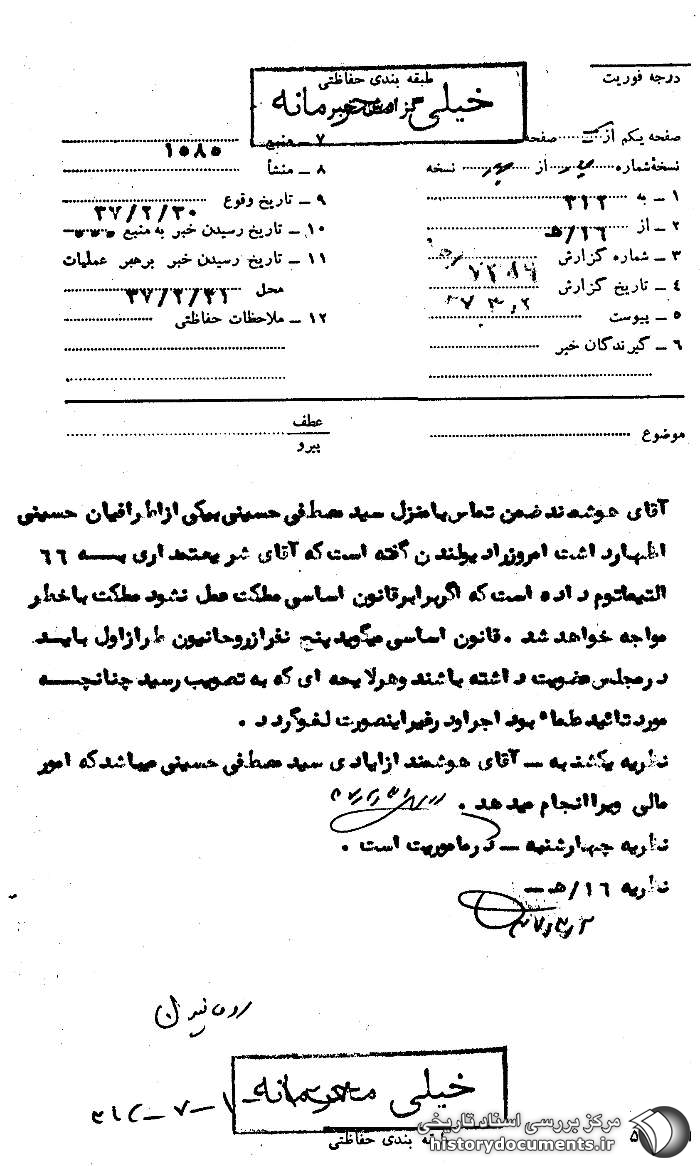 درجه فوریت
طبقه بندی حفاظتی
خیلی محرمانه
گزارش خبر
صفحه یکم از صفحه
نسخهٔ شماره از نسخه
۱ – به ۳۱۲
۲ – از ۱۶/هـ
۳ – شماره گزارش
۴ – تاریخ گزارش
۵ – پیوست
۶ – گیرندگان خبر
۷ – منبع ۱۰۸۵
۸ – منشأ
۹ – تاریخ وقوع ۳۷/۲/۳۰
۱۰ – تاریخ رسیدن خبر به منبع
۱۱ – تاریخ رسیدن خبر برهبر عملیات
محل ۳۷/۲/۳۱
۱۲ – ملاحظات حفاظتی
موضوع
عطف
پیرو
آقای هوشمند ضمن تماس با منزل سید مصطفی حسینی بیکی از اطرافیان حسینی
اظهار داشت امروز رادیو لندن گفته است که آقای شریعتمداری بــه ۶۶
التیماتوم داده است که اگر برابر قانون اساسی مملکت عمل نشود مملکت با خطر
مواجه خواهد شد . قانون اساسی میگوید پنج نفر از روحانیون طراز اول بایــد
در مجلس عضویت داشته باشند و هر لایحه ای که به تصویب رسید چنانچــه
مورد تائید علماء بود اجرا و در غیر اینصورت لغو گردد .
نظریه یکشنبه – آقای هوشمند از ایادی سید مصطفی حسینی میباشد که امور
مالی ویرا انجام میدهد .
نظریه چهارشنبه – در ماموریت است .
نظریه ۱۶/هـ –
۳۷/۳/۲
روحانیون
خیلی محرمانه
۳۱۲–۷–۱
طبقه بندی حفاظتی
مرکز بررسی اسناد تاریخی
historydocuments.ir